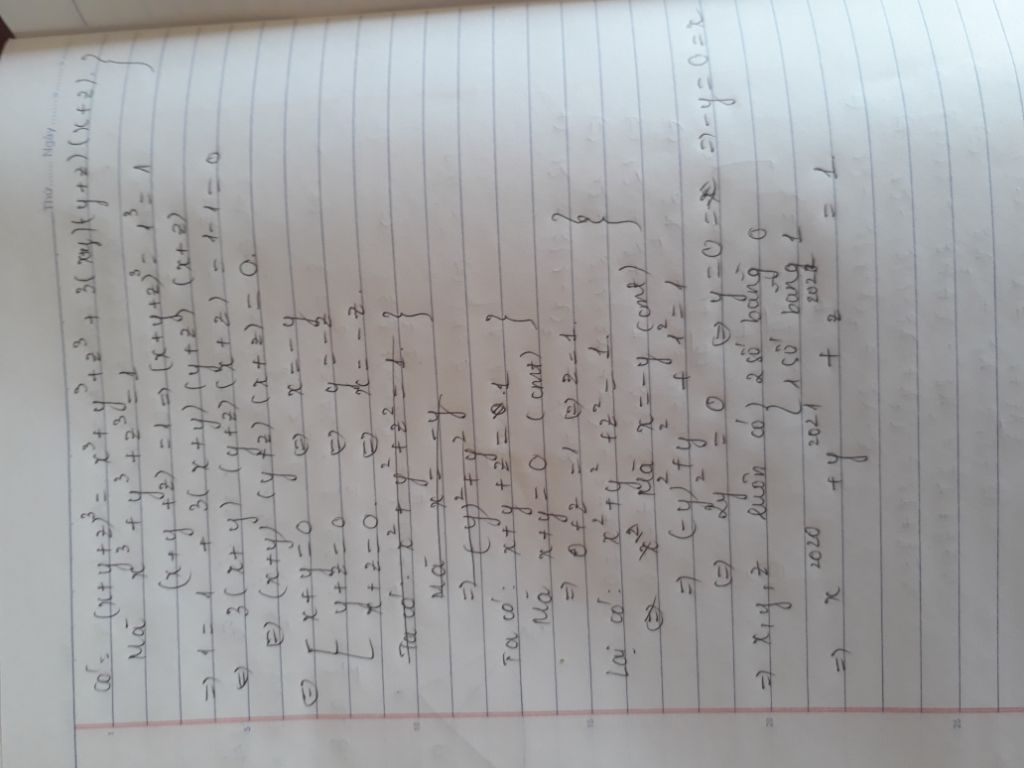 Thứ ........ Ngày ........
Có: (x+y+z)³ = x³+y³+z³+3(x+y)(y+z)(x+z)
Mà x³+y³+z³=1
(x+y+z)=1 => (x+y+z)³=1³=1
=> 1 = 1 + 3(x+y)(y+z)(x+z)
<=> 3(x+y)(y+z)(x+z) = 1-1=0
<=> (x+y)(y+z)(x+z)=0.
<=> [ x+y=0 <=> x=-y
y+z=0 <=> y=-z
x+z=0 <=> x=-z
Ta có: x²+y²+z²=1
Mà x=-y
=> (-y)²+y²
Ta có: x+y+z=1
Mà x+y=0 (cmt)
=> 0+z=1 <=> z=1
Lại có: x²+y²+z²=1.
<=> Mà x=-y (cmt)
=> (-y)²+y²+1²=1
<=> 2y²=0 <=> y=0 => -y=0=x
=> x,y,z luôn có { 2 số bằng 0
1 số bằng 1
=> x²⁰²⁰ + y²⁰²¹ + z²⁰²² = 1